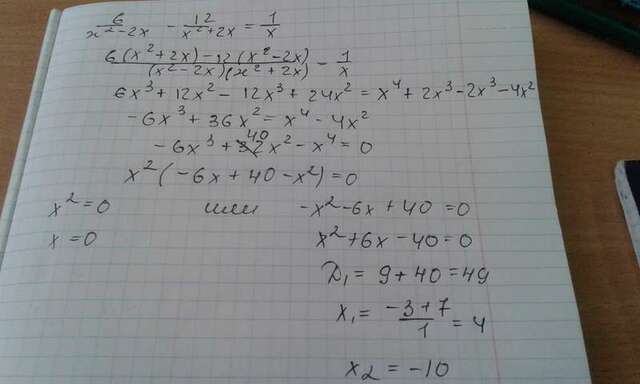 6/(x²-2x) - 12/(x²+2x) = 1/x
(6(x²+2x)-12(x²-2x))/((x²-2x)(x²+2x)) - 1/x
6x³+12x²-12x³+24x²=x⁴+2x³-2x³-4x²
-6x³+36x²=x⁴-4x²
-6x³+40x²-x⁴=0
x²(-6x+40-x²)=0
x²=0 или -x²-6x+40=0
x=0 x²+6x-40=0
D₁=9+40=49
x₁=(-3+7)/1=4
x₂=-10